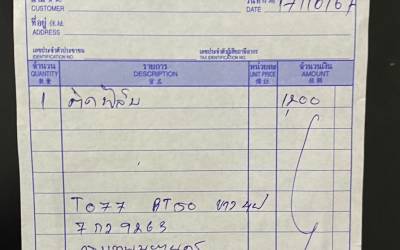 CUSTOMER
วันที่
DATE 17/10/67
ที่อยู่
ADDRESS
เลขประจำตัวประชาชน เลขประจำตัวผู้เสียภาษีอากร
IDENTIFICATION NO. TAX IDENTIFICATION NO.
จำนวน รายการ หน่วยละ จำนวนเงิน
QUANTITY DESCRIPTION UNIT PRICE AMOUNT
數量 貨名 價銀
1 ติดฟิล์ม 1200
TO77 AT50
7 กว 9263
กรุงเทพมหานคร